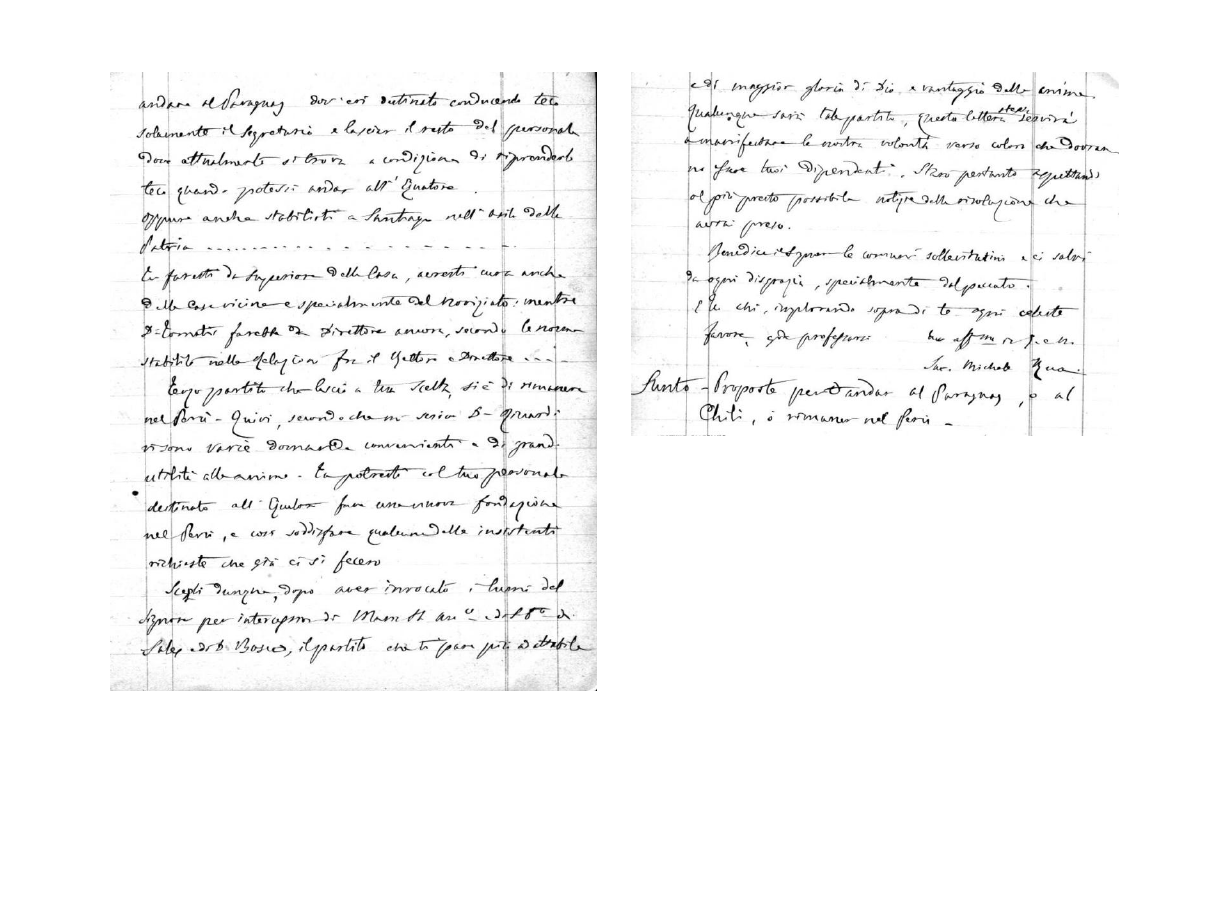 andare al Paraguay dov'eri destinato conducendo teco
solamente il Segretario e lasciar il resto del personale
dove attualmente si trova a condizione di riprenderlo
teco quando potessi andar all'Equatore.
oppure anche stabilirti a Santiago nell'asilo della
Patria ..................
Tu faresti da Superiore della Casa, avresti cura anche
delle Case vicine e specialmente del Noviziato: mentre
D. Tomatis farebbe da Direttore ancora, secondo le norme
stabilite nelle Relazioni fra il Rettore e Direttore ....
Terzo partito che lascio a tua scelta, si è di rimanere
nel Perù - Quivi, secondo che mi scrive D-
vi sono varie domande convenienti e di grande
utilità alle anime. Tu potresti col tuo personale
destinato all'Equatore fare una nuova fondazione
nel Perù, e così soddisfare qualcuna delle insistenti
richieste che già ci si fecero
Scegli dunque, dopo aver invocato i lumi del
Signore per intercession di Maria SS e di S. di
Sales e di D. Bosco, il partito che ti pare più adattabile
e di maggior gloria di Dio e vantaggio delle anime
Qualunque sarà tale partito, questa lettera stessa servirà
a manifestare la nostra volontà verso coloro che dovran
no fare tuoi dipendenti. Starò pertanto aspettando
al più presto possibile notizie della risoluzione che
avrai preso.
Benedica il Signore le comuni sollecitudini e ci salvi
da ogni disgrazia, specialmente dal peccato.
E tu chi, implorando sopra di te ogni celeste
favore, gode professarsi tuo aff.mo in G. e M.
Sac. Michele Rua
Sunto - Proposte per andar al Paraguay, o al
Chili, o rimaner nel Perù -